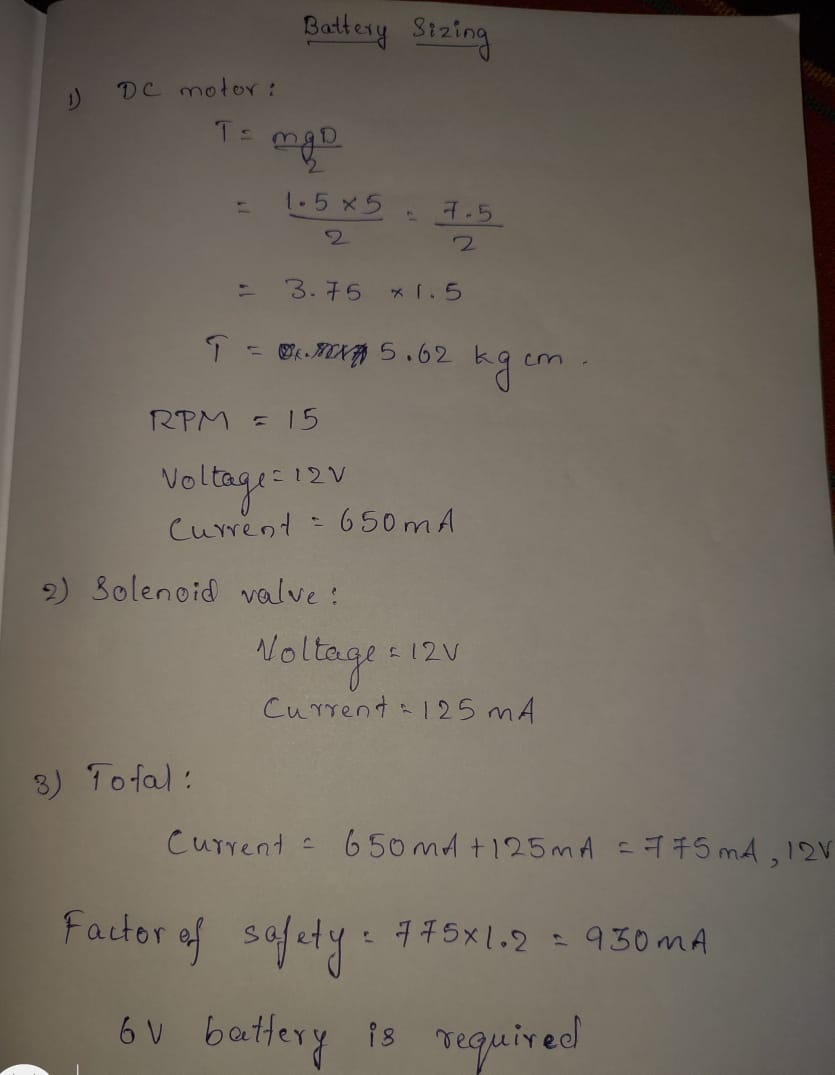 Battery Sizing
1) DC motor:
T = mgD/2
= 1.5 x 5 / 2 = 7.5 / 2
= 3.75 x 1.5
T = 5.62 kg cm.
RPM = 15
Voltage = 12V
Current = 650mA
2) Solenoid valve:
Voltage = 12V
Current = 125 mA
3) Total:
Current = 650mA + 125mA = 775mA, 12V
Factor of safety = 775x1.2 = 930mA
6V battery is required